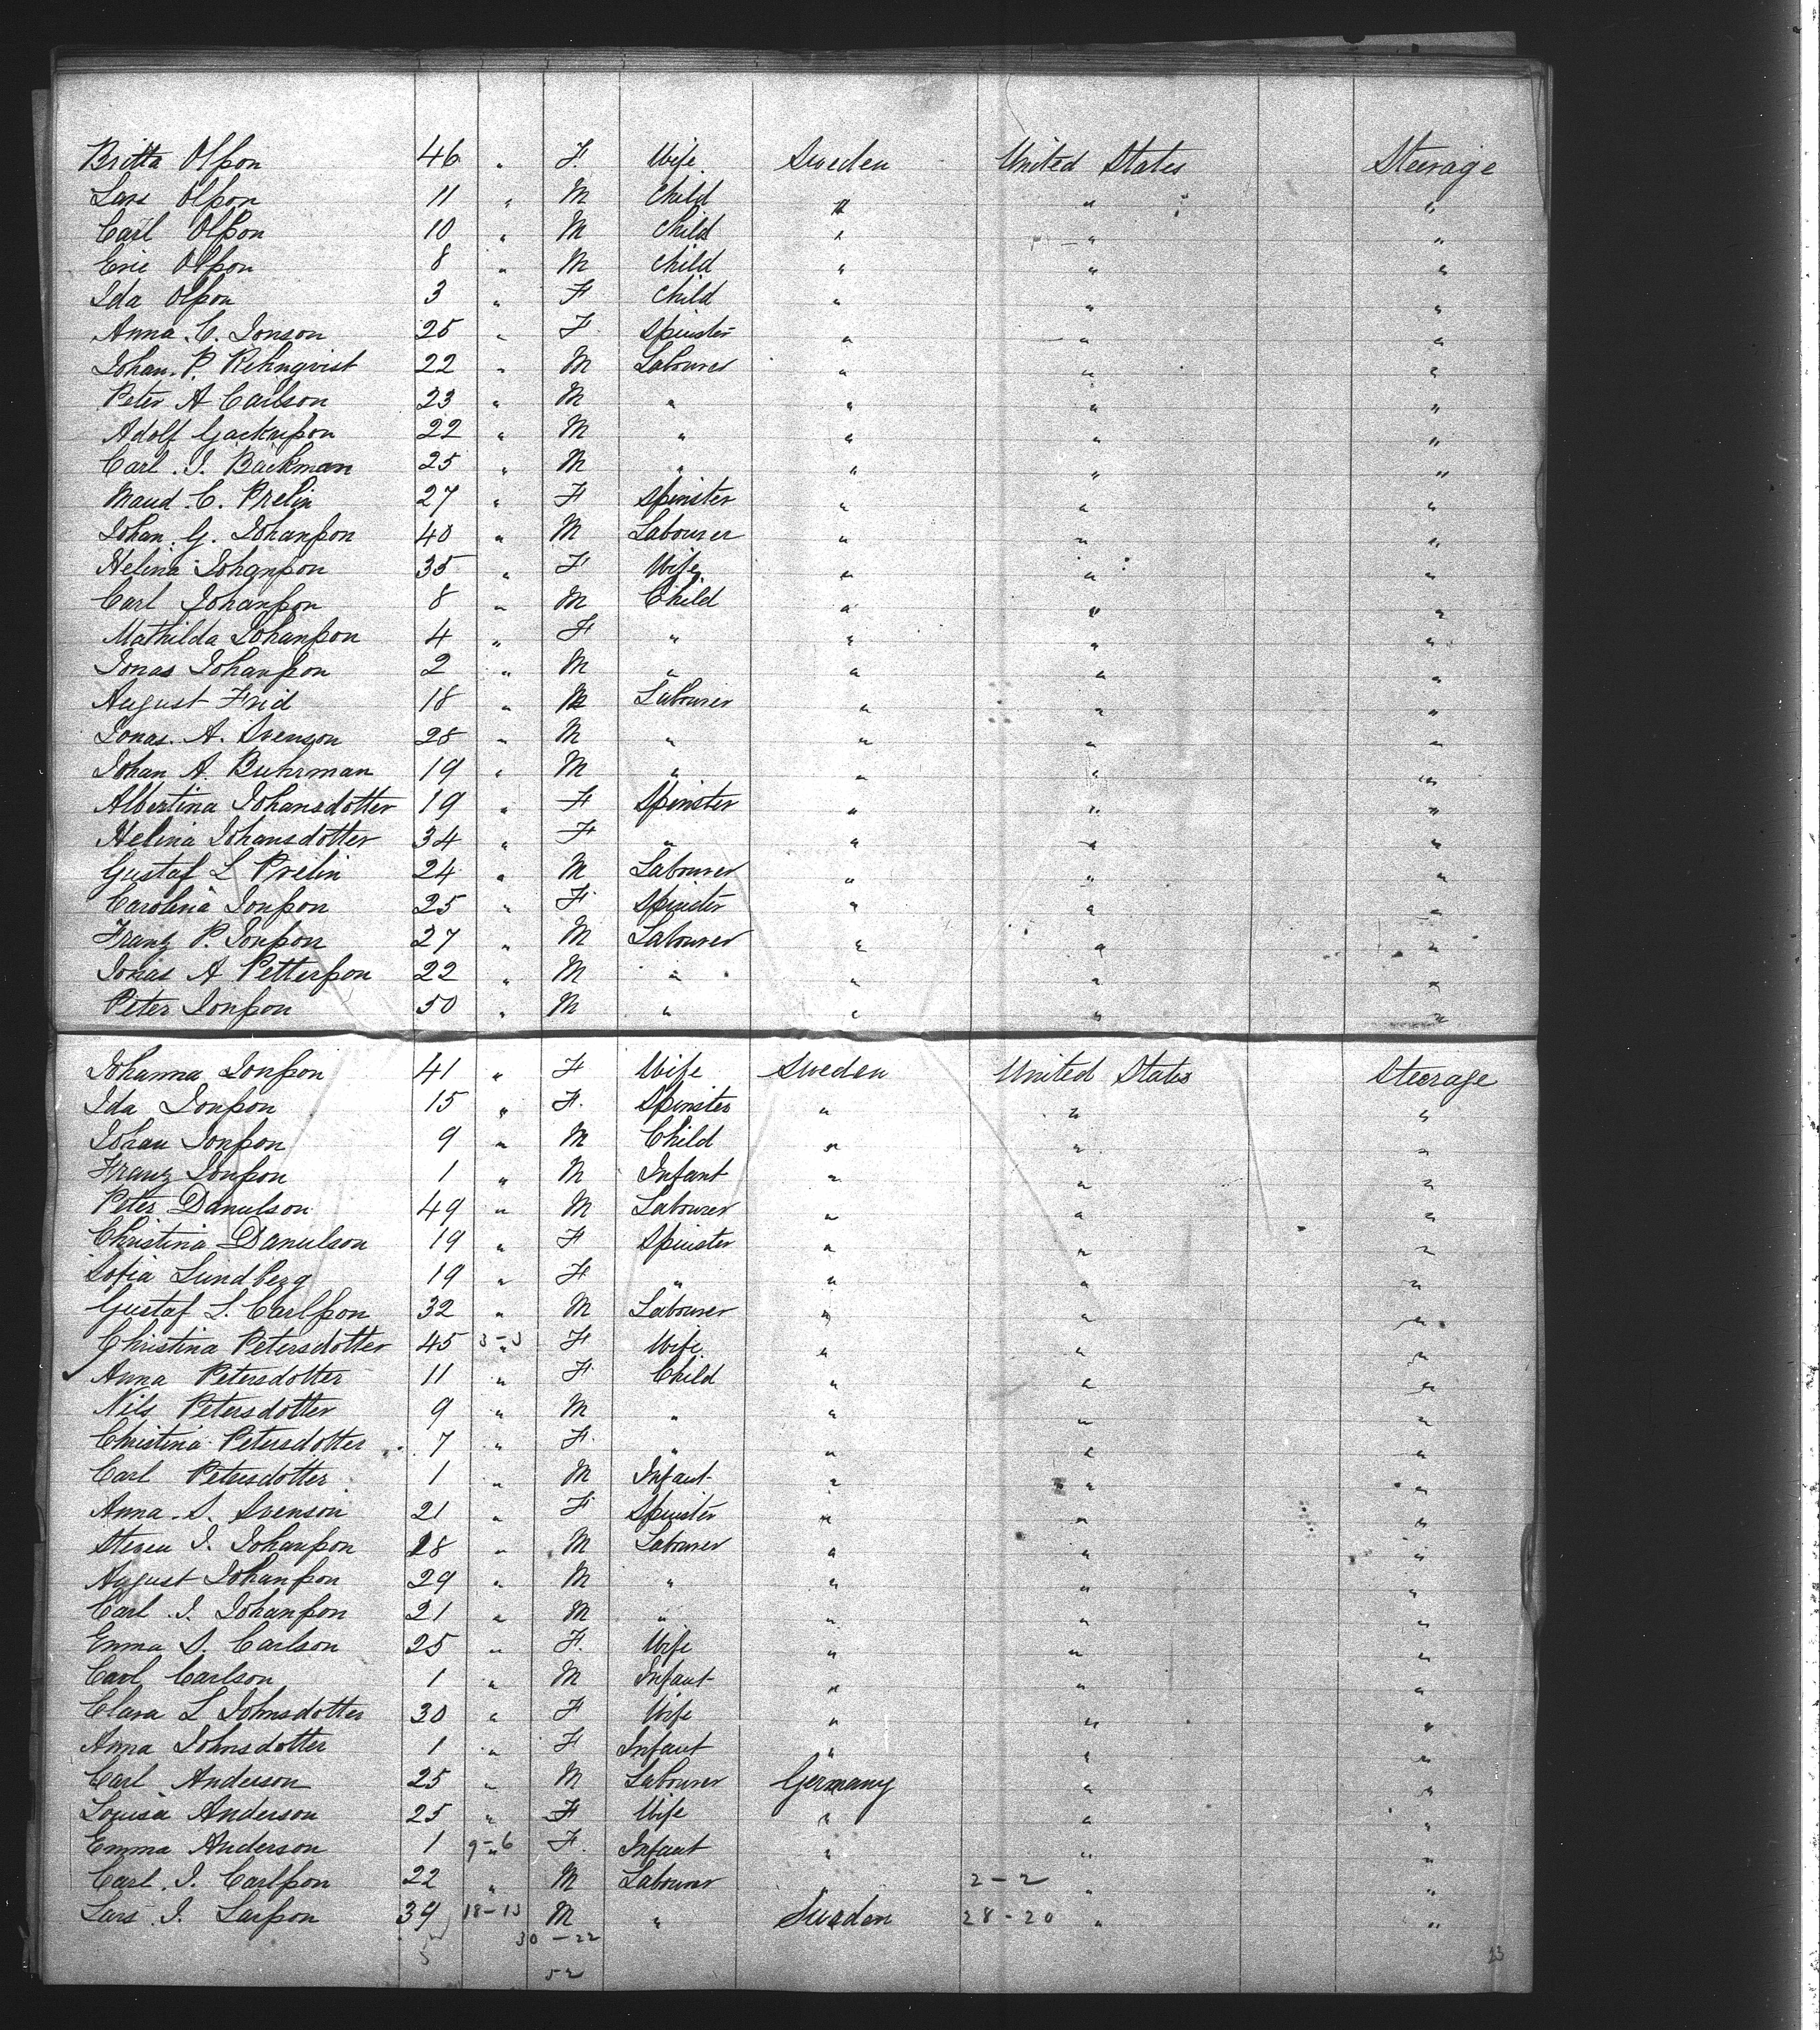 Britta Olsson 46 " F. Wife Sweden United States Steerage
Lars Olsson 11 " M Child " " "
Carl Olsson 10 " M Child " " "
Eric Olsson 8 " M Child " " "
Ida Olsson 3 " F Child " " "
Anna C. Jonson 25 " F. Spinster " " "
Johan P. Rehnqvist 22 " M Labourer " " "
Peter A Carlson 23 " M " " " "
Adolf 22 " M " " " "
Carl J. Backman 25 " M " " " "
Maud C. Prelin 27 " F Spinster " " "
Johan G. Johansson 40 " M Labourer " " "
Helina Johansson 35 " F Wife " " "
Carl Johansson 8 " M Child " " "
Mathilda Johansson 4 " F " " " "
Jonas Johansson 2 " M " " " "
August Frid 18 " M Labourer " " "
Jonas A. Svenson 28 " M " " " "
Johan A. Buhrman 19 " M " " " "
Albertina Johansdotter 19 " F Spinster " " "
Helina Johansdotter 34 " F " " " "
Gustaf L Prelin 24 " M Labourer " " "
Carolina Jonsson 25 " F Spinster " " "
Franz P. Jonsson 27 " M Labourer " " "
Jonas A Pettersson 22 " M " " " "
Peter Jonsson 50 " M " " " "
Johanna Jonsson 41 " F Wife Sweden United States Steerage
Ida Jonsson 15 " F. Spinster " " "
Johan Jonsson 9 " M Child " " "
Franz Jonsson 1 " M Infant " " "
Peter Danulson 49 " M Labourer " " "
Christina Danulson 19 " F Spinster " " "
Sofia Lundberg 19 " F " " " "
Gustaf L. Carlsson 32 " M Labourer " " "
Christina Petersdotter 45 3-3 " F Wife " " "
Anna Petersdotter 11 " F Child " " "
Nils Petersdotter 9 " M " " " "
Christina Petersdotter 7 " F " " " "
Carl Petersdotter 1 " M Infant " " "
Anna S. Svenson 21 " F Spinster " " "
J. Johansson 28 " M Labourer " " "
August Johansson 29 " M " " " "
Carl J. Johansson 21 " M " " " "
Emma S. Carlson 25 " F. Wife " " "
Carl Carlson 1 " M Infant " " "
Clara L Johnsdotter 30 " F Wife " " "
Anna Johnsdotter 1 " F Infant " " "
Carl Anderson 25 " M Labourer Germany " "
Louisa Anderson 25 " F Wife " " "
Emma Anderson 1 9-6 " F. Infant " " "
Carl J. Carlsson 22 " M Labourer " 2-2 " "
Lars J. Larsson 39 18-13 M " Sweden 28-20 " "
30-22
52